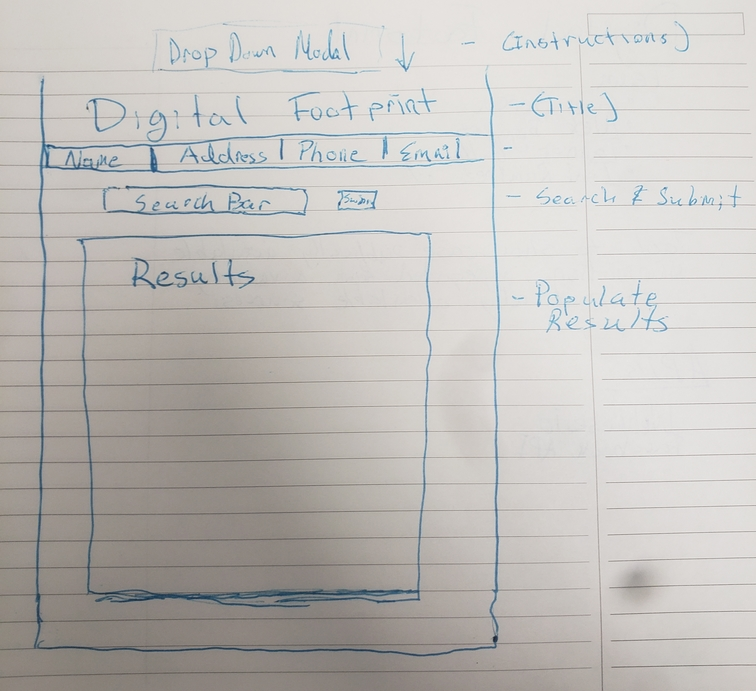 Drop Down Modal ↓ - (Instructions)
Digital Footprint - (Title)
Name | Address | Phone | Email -
Search Bar Submit - Search & Submit
Results
- Populate
Results